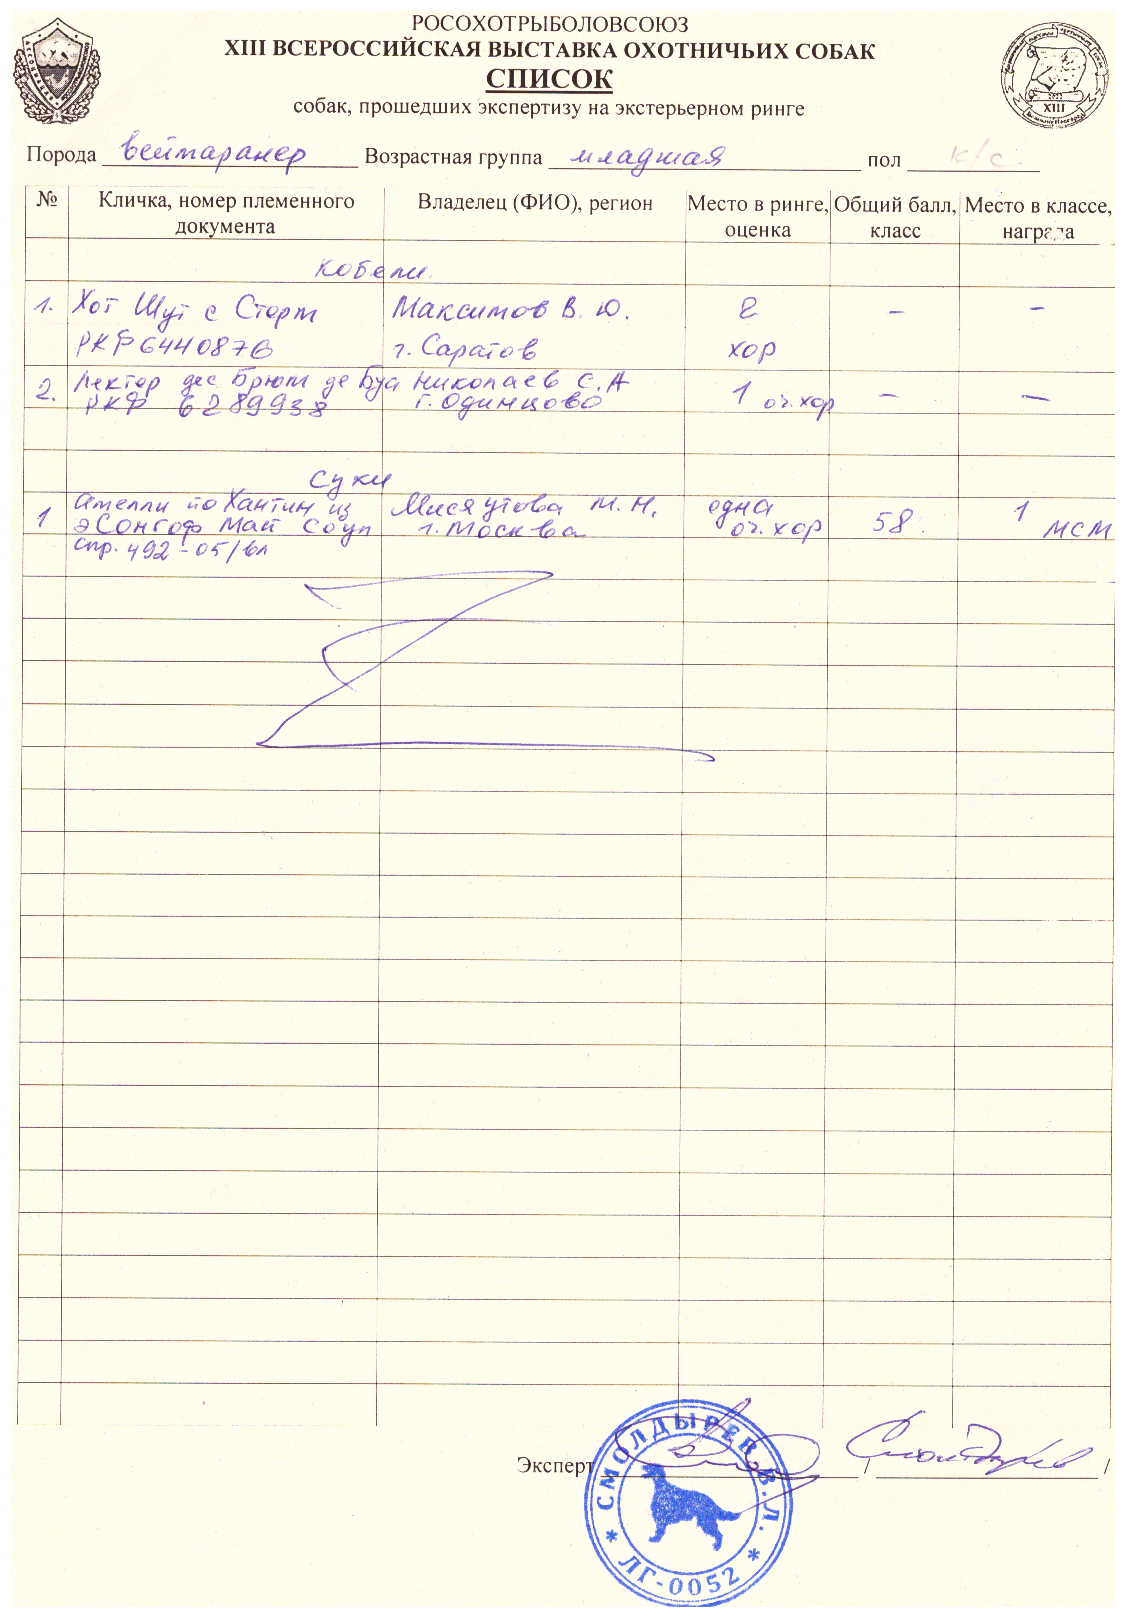 РОСОХОТРЫБОЛОВСОЮЗ
XIII ВСЕРОССИЙСКАЯ ВЫСТАВКА ОХОТНИЧЬИХ СОБАК
СПИСОК
собак, прошедших экспертизу на экстерьерном ринге
XIII
Порода веймаранер Возрастная группа младшая пол к/с
№ Кличка, номер племенного документа Владелец (ФИО), регион Место в ринге, оценка Общий балл, класс Место в классе, награда
Кобели
1. Хот Шут с Сторм Максимов В. Ю. 2 – –
РКФ6440876 г. Саратов хор
2. Лектор дес Брюм де Буа Николаев С.А 1 оч.хор – –
РКФ 6289938 г. Одинцово
Суки
1 Амелли по Хантин из Мисяутова М.Н. одна 58 1
эСонгоф Май Соул г. Москва оч.хор МСМ
спр. 492-05/вл
Эксперт / Смолдырев /
* СМОЛДЫРЕВ В.Л. *
ЛГ-0052